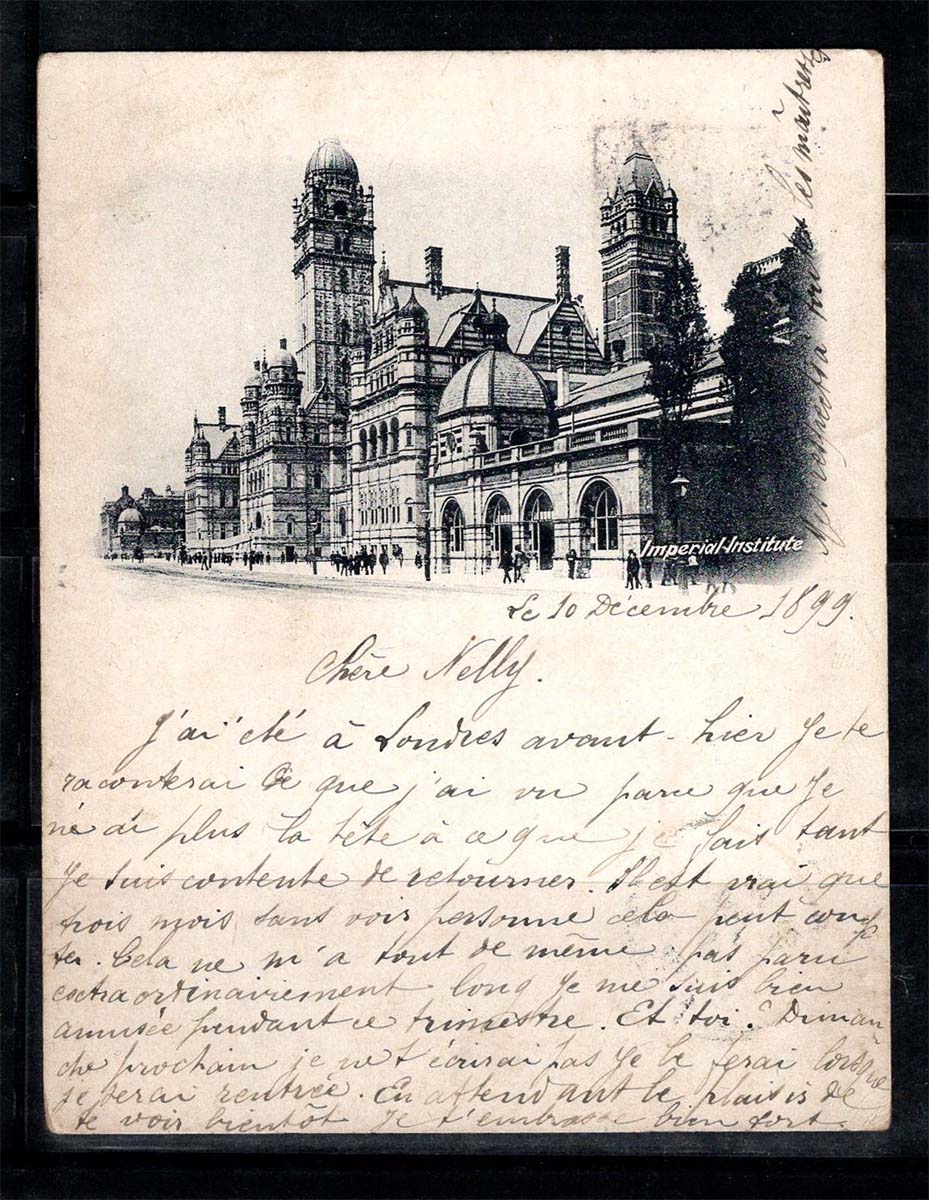 Imperial-Institute
Le 10 Décembre 1899.
Chère Nelly.
J'ai été à Londres avant-hier Je te
raconterai ce que j'ai vu parce que Je
ne ai plus la tête à ce que je fais tant
Je suis contente de retourner. Il est vrai que
trois mois sans voir personne cela peut comp
ter. Cela ne m'a tout de même pas paru
extraordinairement long Je me suis bien
amusée pendant ce trimestre. Et toi? Diman
che prochain je ne t'écrirai pas Je le ferai lorsque
je serai rentrée. En attendant le plaisir de
te voir bientôt Je t'embrasse bien fort.
les maîtres